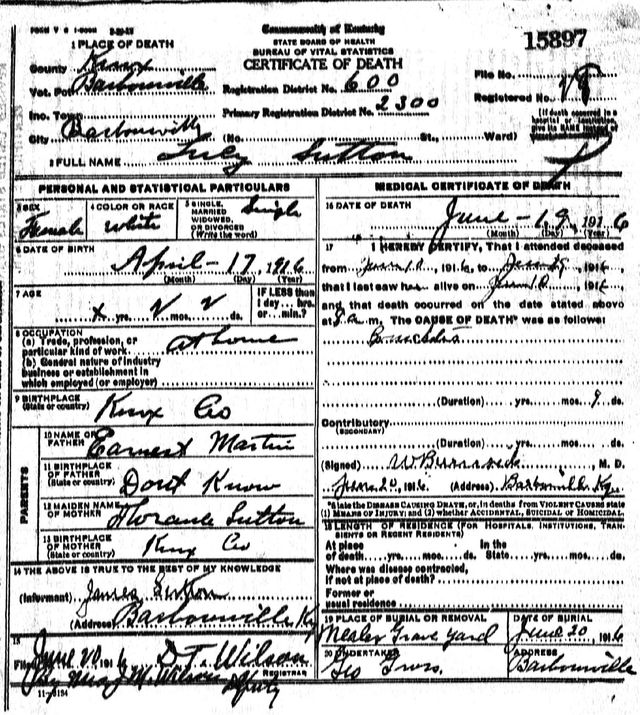 FORM V S
Commonwealth of Kentucky
STATE BOARD OF HEALTH
BUREAU OF VITAL STATISTICS
CERTIFICATE OF DEATH
15897
1 PLACE OF DEATH
County Knox
Vot. Pct. Barbourville
Inc. Town
City Barbourville
Registration District No. 600
Primary Registration District No. 2300
File No.
Registered No.
(No. St., Ward)
[If death occurred in a hospital or institution, give its NAME instead of
2 FULL NAME Lucy Sutton
PERSONAL AND STATISTICAL PARTICULARS
3 SEX
Female
4 COLOR OR RACE
White
5 SINGLE, MARRIED WIDOWED, OR DIVORCED
(Write the word)
Single
6 DATE OF BIRTH
April - 17, 1916
(Month) (Day) (Year)
7 AGE
x yrs. 2 mos. 2 ds.
IF LESS than 1 day ... hrs. or ... min.?
8 OCCUPATION
(a) Trade, profession, or particular kind of work at home
(b) General nature of industry business or establishment in which employed (or employer)
9 BIRTHPLACE
(State or country) Knox Co
PARENTS
10 NAME OF FATHER Earnest Martin
11 BIRTHPLACE OF FATHER
(State or country) Dont Know
12 MAIDEN NAME OF MOTHER Sutton
13 BIRTHPLACE OF MOTHER
(State or country) Knox Co
14 THE ABOVE IS TRUE TO THE BEST OF MY KNOWLEDGE
(Informant) James Sutton
(Address) Barbourville Ky
15
Filed June 20 1916 D.T. Wilson
REGISTRAR
By Mrs J M Wilson Deputy
MEDICAL CERTIFICATE OF DEATH
16 DATE OF DEATH
June - 19, 1916
(Month) (Day) (Year)
17 I HEREBY CERTIFY, That I attended deceased
from 1916, to 191
that I last saw h alive on 191
and that death occurred on the date stated above
at m. The CAUSE OF DEATH* was as follows:
(Duration) yrs. mos. 9 ds.
Contributory
(SECONDARY)
(Duration) yrs. mos. ds.
(Signed) M. D.
June 20, 1916 (Address) Barbourville Ky.
*State the DISEASE CAUSING DEATH, or, in deaths from VIOLENT CAUSES state
(1) MEANS OF INJURY; and (2) whether ACCIDENTAL, SUICIDAL or HOMICIDAL.
18 LENGTH OF RESIDENCE (FOR HOSPITALS, INSTITUTIONS, TRANSIENTS OR RECENT RESIDENTS)
At place of death yrs. mos. ds. In the State yrs. mos. ds.
Where was disease contracted,
if not at place of death?
Former or
usual residence
19 PLACE OF BURIAL OR REMOVAL
Grave Yard
DATE OF BURIAL
June 20, 1916
20 UNDERTAKER
Geo
ADDRESS
Barbourville
11-3184